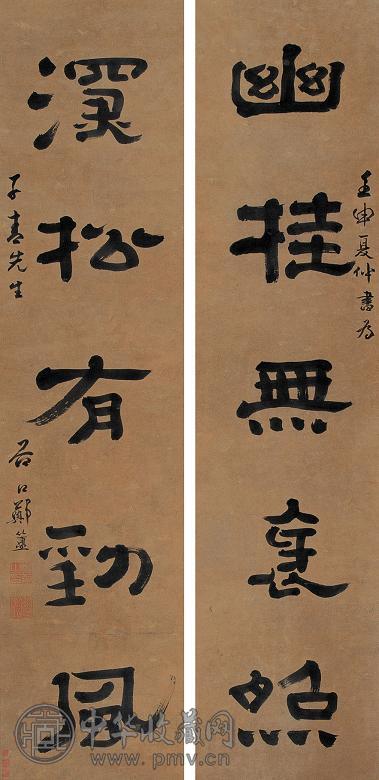 幽桂無衰照
壬申夏仲書為
深松有勁風
子青先生
谷口鄭簠
中华收藏网
www.pmv.cn